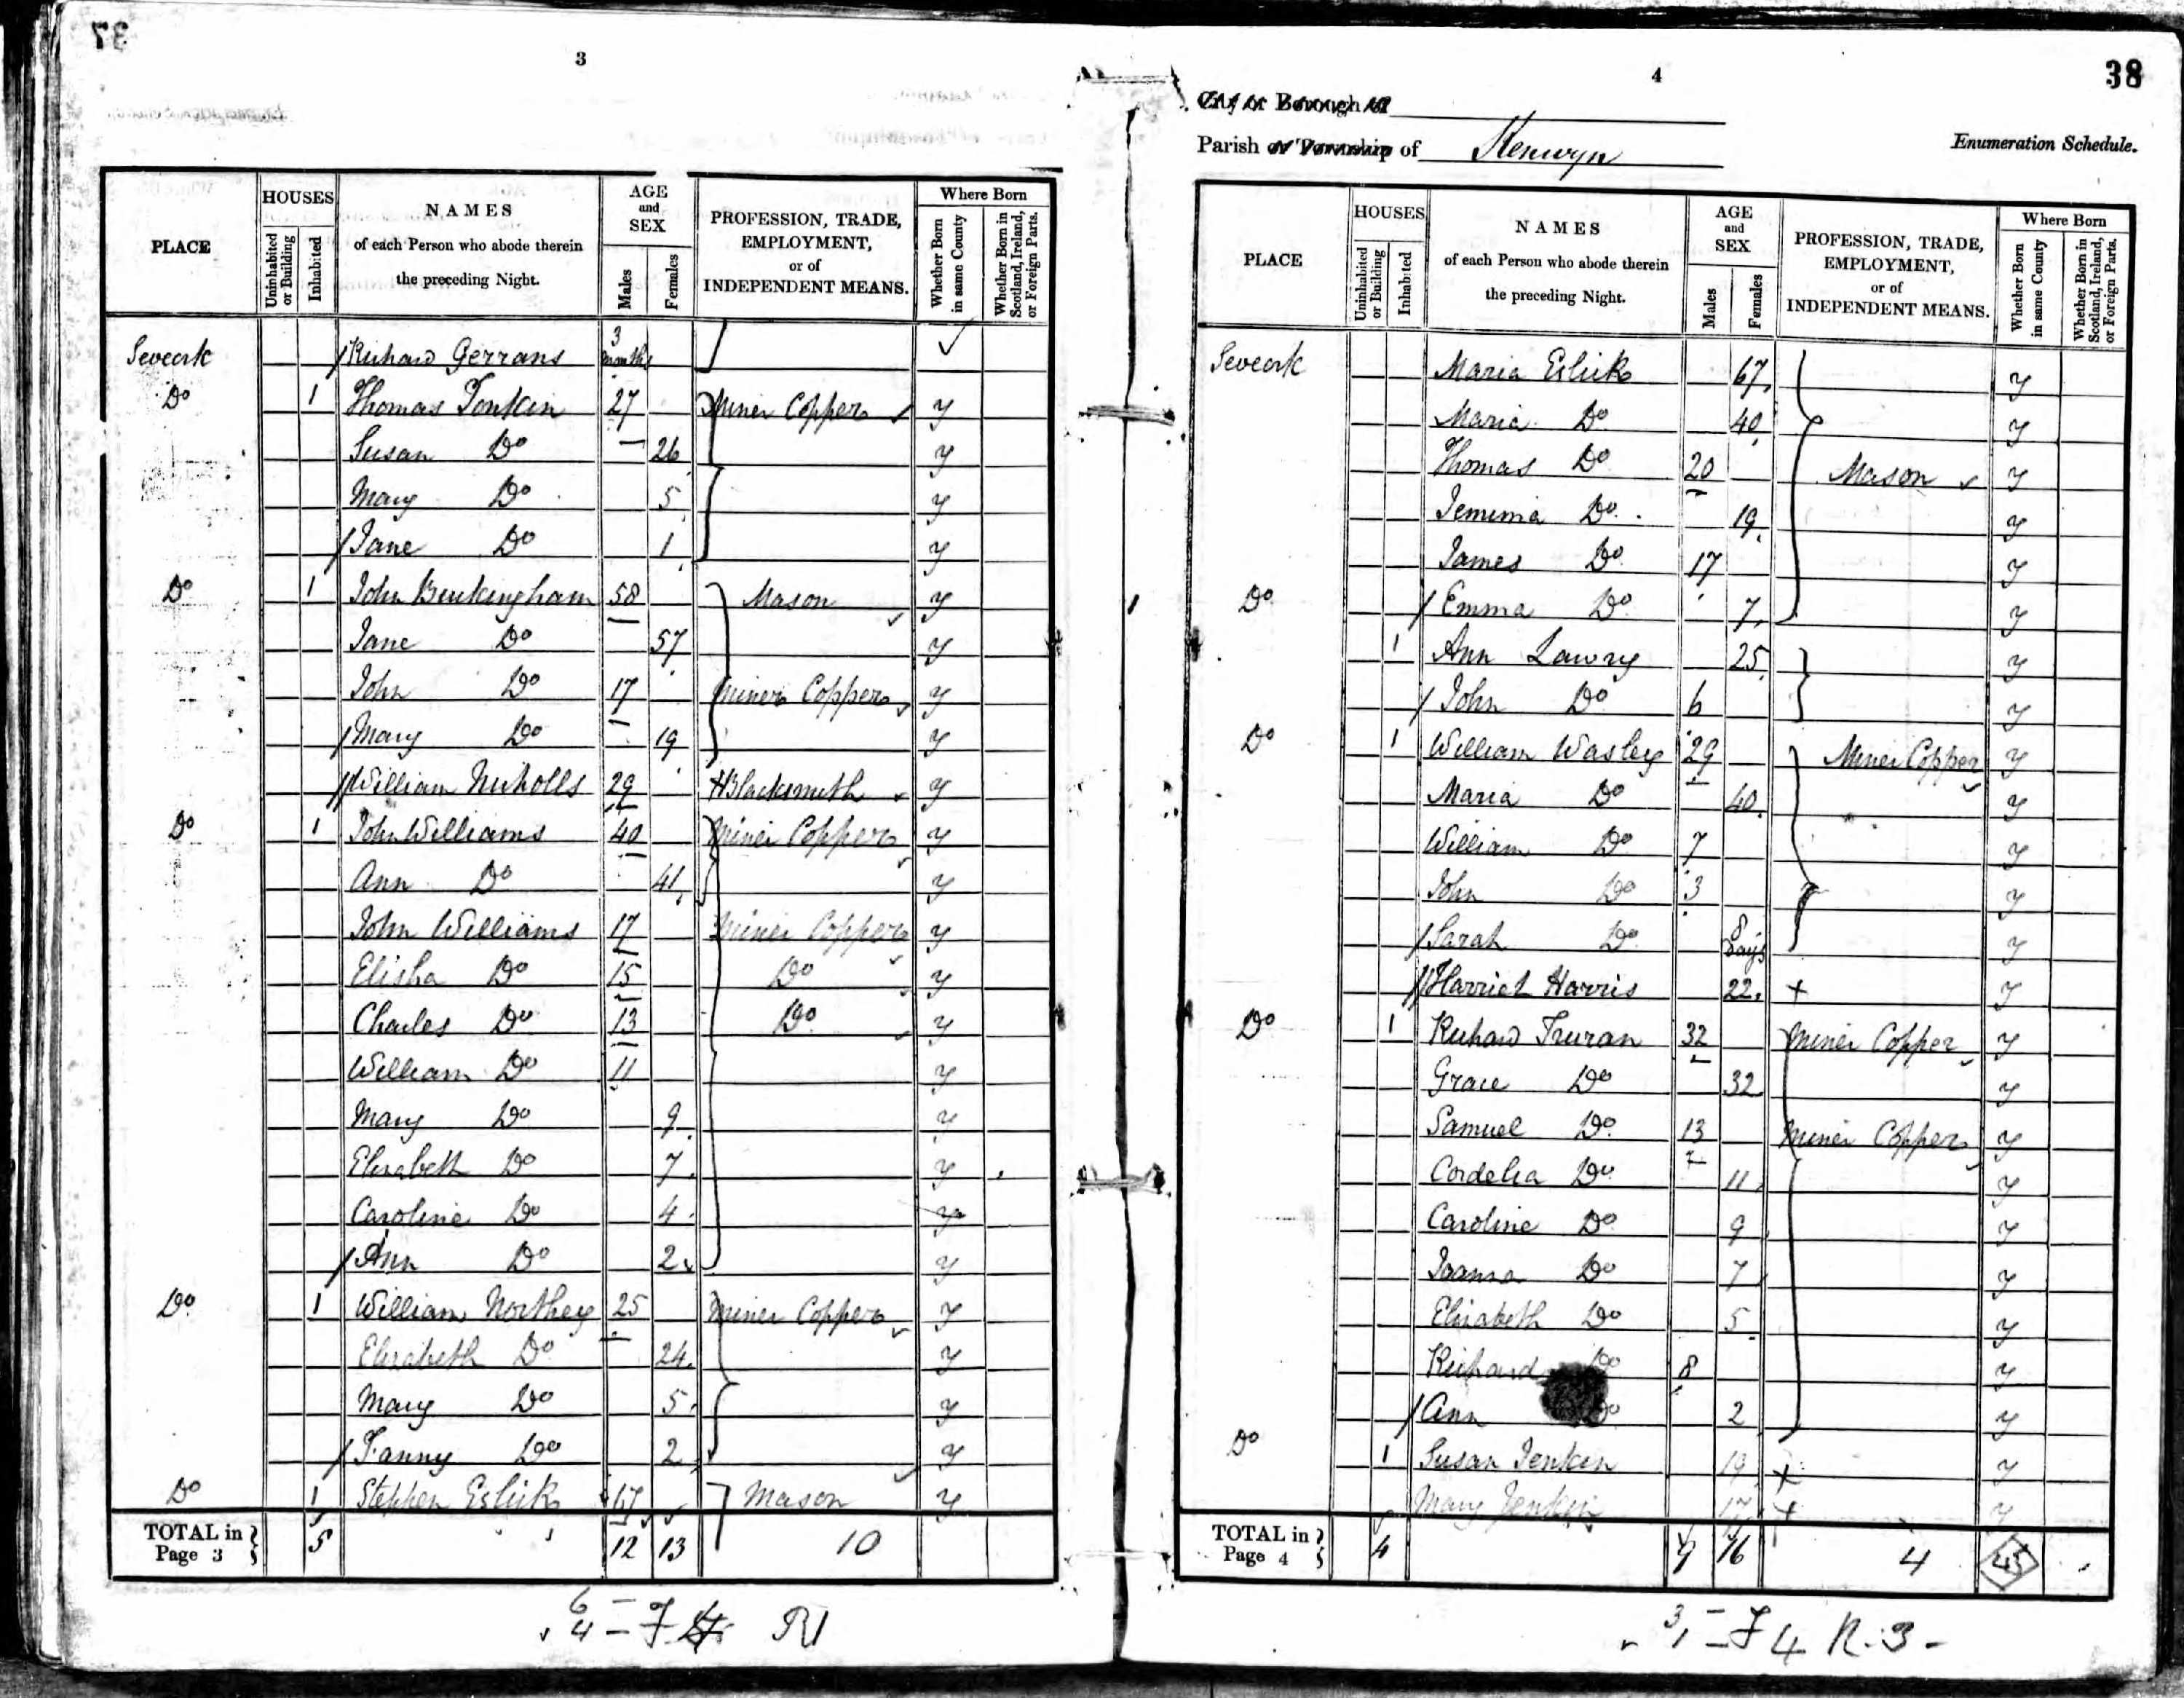 37
3
HOUSES
NAMES
AGE
and
SEX
PROFESSION, TRADE,
EMPLOYMENT,
or of
INDEPENDENT MEANS.
Where Born
PLACE
Uninhabited
or Building
Inhabited
of each Person who abode therein
the preceding Night.
Males
Females
Whether Born
in same County
Whether Born in
Scotland, Ireland,
or Foreign Parts.
Seveock Richard Gerrans 3 months
Do 1 Thomas Tonkin 27 Miner Copper y
Susan Do 26 y
Mary Do 5 y
Jane Do 1 y
Do 1 John Buckingham 58 Mason y
Jane Do 57 y
John Do 17 Miner Copper y
Mary Do 19 y
William Nicholls 29 Blacksmith y
Do 1 John Williams 40 Miner Copper y
Ann Do 41 y
John Williams 17 Miner Copper y
Elisha Do 15 Do y
Charles Do 13 Do y
William Do 11 y
Mary Do 9 y
Elizabeth Do 7 y
Caroline Do 4 y
Ann Do 2 y
Do 1 William Northey 25 Miner Copper y
Elizabeth Do 24 y
Mary Do 5 y
Fanny Do 2 y
Do 1 Stephen Eslick 67 Mason y
TOTAL in
Page 3 5 12 13 10
6
4 = F R1
4
38
City or Borough of
Parish or Township of Kenwyn
Enumeration Schedule.
PLACE
HOUSES
Uninhabited
or Building
Inhabited
NAMES
of each Person who abode therein
the preceding Night.
AGE
and
SEX
Males
Females
PROFESSION, TRADE,
EMPLOYMENT,
or of
INDEPENDENT MEANS.
Where Born
Whether Born
in same County
Whether Born in
Scotland, Ireland,
or Foreign Parts.
Seveock Maria Eslick 67 y
Maria Do 40 y
Thomas Do 20 Mason y
Jemima Do 19 y
James Do 17 y
Do Emma Do 7 y
1 Ann Lawry 25 y
John Do 6 y
Do 1 William Wasley 29 Miner Copper y
Maria Do 40 y
William Do 7 y
John Do 3 y
Sarah Do 8 days y
Harriet Harris 22 + y
Do 1 Richard Truran 32 Miner Copper y
Grace Do 32 y
Samuel Do 13 Miner Copper y
Cordelia Do 11 y
Caroline Do 9 y
Joanna Do 7 y
Elizabeth Do 5 y
Richard Do 8 y
Ann Do 2 y
Do 1 Susan Jenkin 19 + y
Mary Jenkin 17 + y
TOTAL in
Page 4 4 9 16 4 45
3
1 = F 4 R. 3